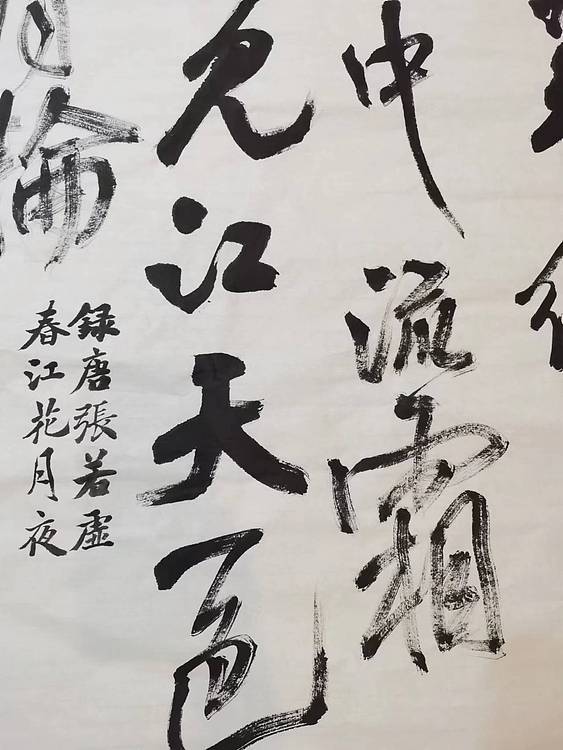 中流霜
見江天色
月輪
録唐張若虛
春江花月夜